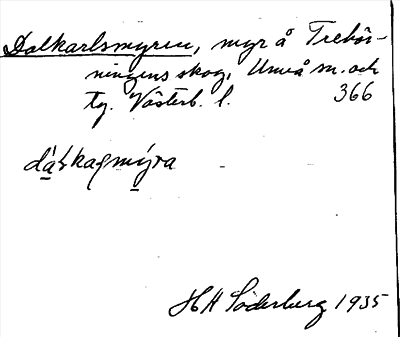 Dalkarlsmyren, myr å Trebör-
ningens skog, Umeå sn. och
tg. Västerb. l. 366
HH Söderberg 1935